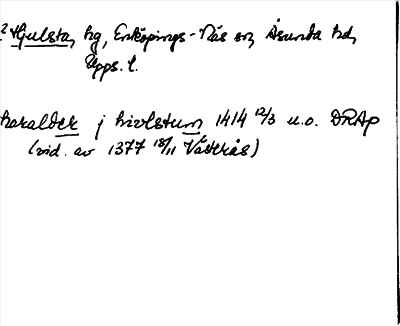 ? Hjulsta, hg, Enköpings-Näs sn, Åsunda hd,
Upps. l.
haralder j hivlstum 1414 12/3 u.o. DRAp
(vid. av 1377 18/11 Västerås)